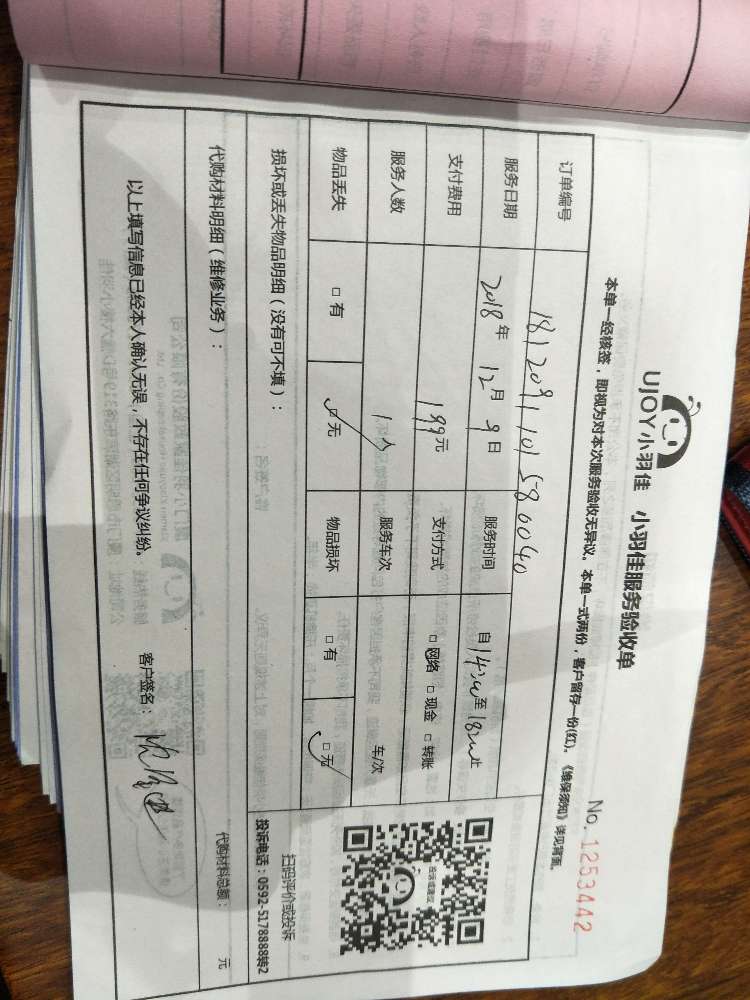 UJOY小羽佳 小羽佳服务验收单
No. 1253442
本单一经核签，即视为对本次服务验收无异议。本单一式两份，客户留存一份(红)。《维保须知》详见背面。
订单编号 181209110158 0040
服务日期 2018年 12月 9日 服务时间 自14:00至18:00止
支付费用 199元 支付方式 □网络 □现金 □转账
服务人数 1人 服务车次 车/次
物品丢失 □有 □无 物品损坏 □有 □无
损坏或丢失物品明细（没有可不填）：
投诉或建议
扫码评价或投诉
投诉电话：0592-5178888转2
代购材料明细（维修业务）：
代购材料总额： 元
以上填写信息已经本人确认无误，不存在任何争议纠纷。 客户签名：